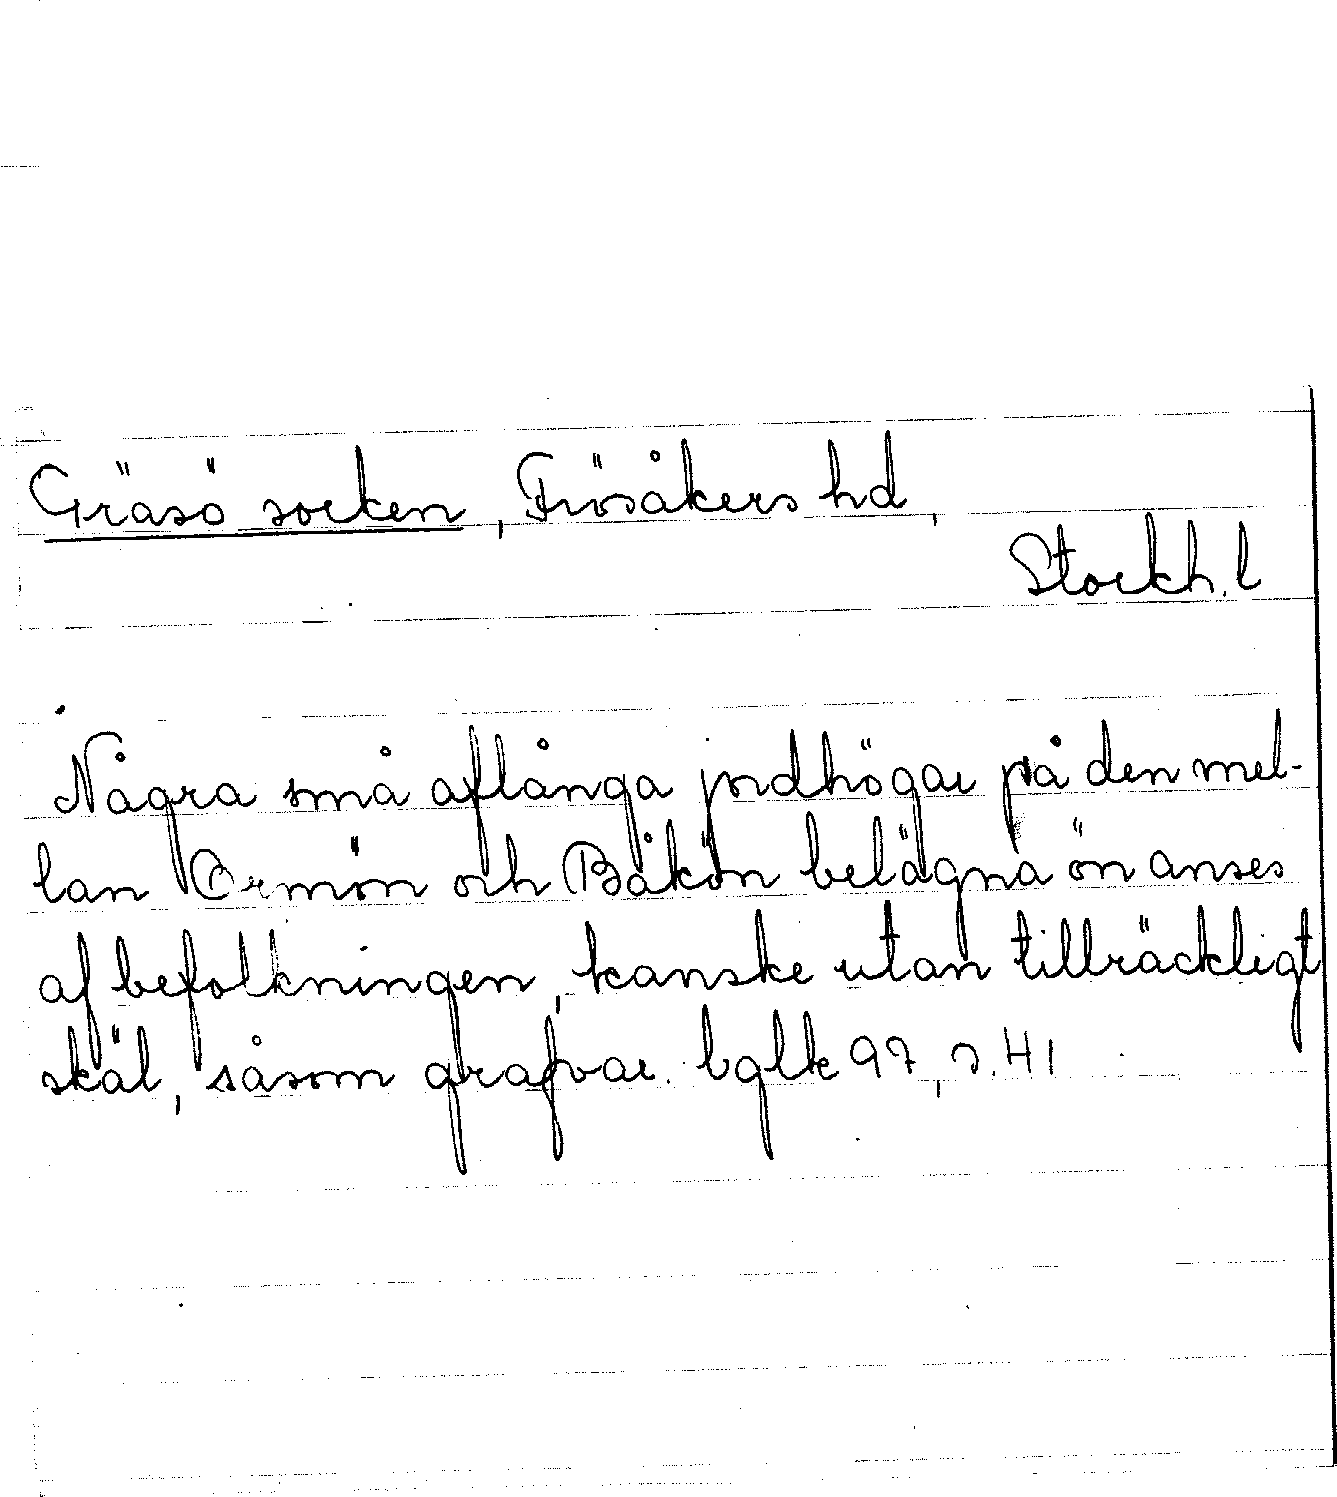 Gräsö socken, Frösåkers hd,
Stockh. l
Några små aflånga jordhögar på den mel-
lan Ormön och Båkön belägna ön anses
af befolkningen, kanske utan tillräckligt
skäl, såsom grafvar. bglk 97, s. 41